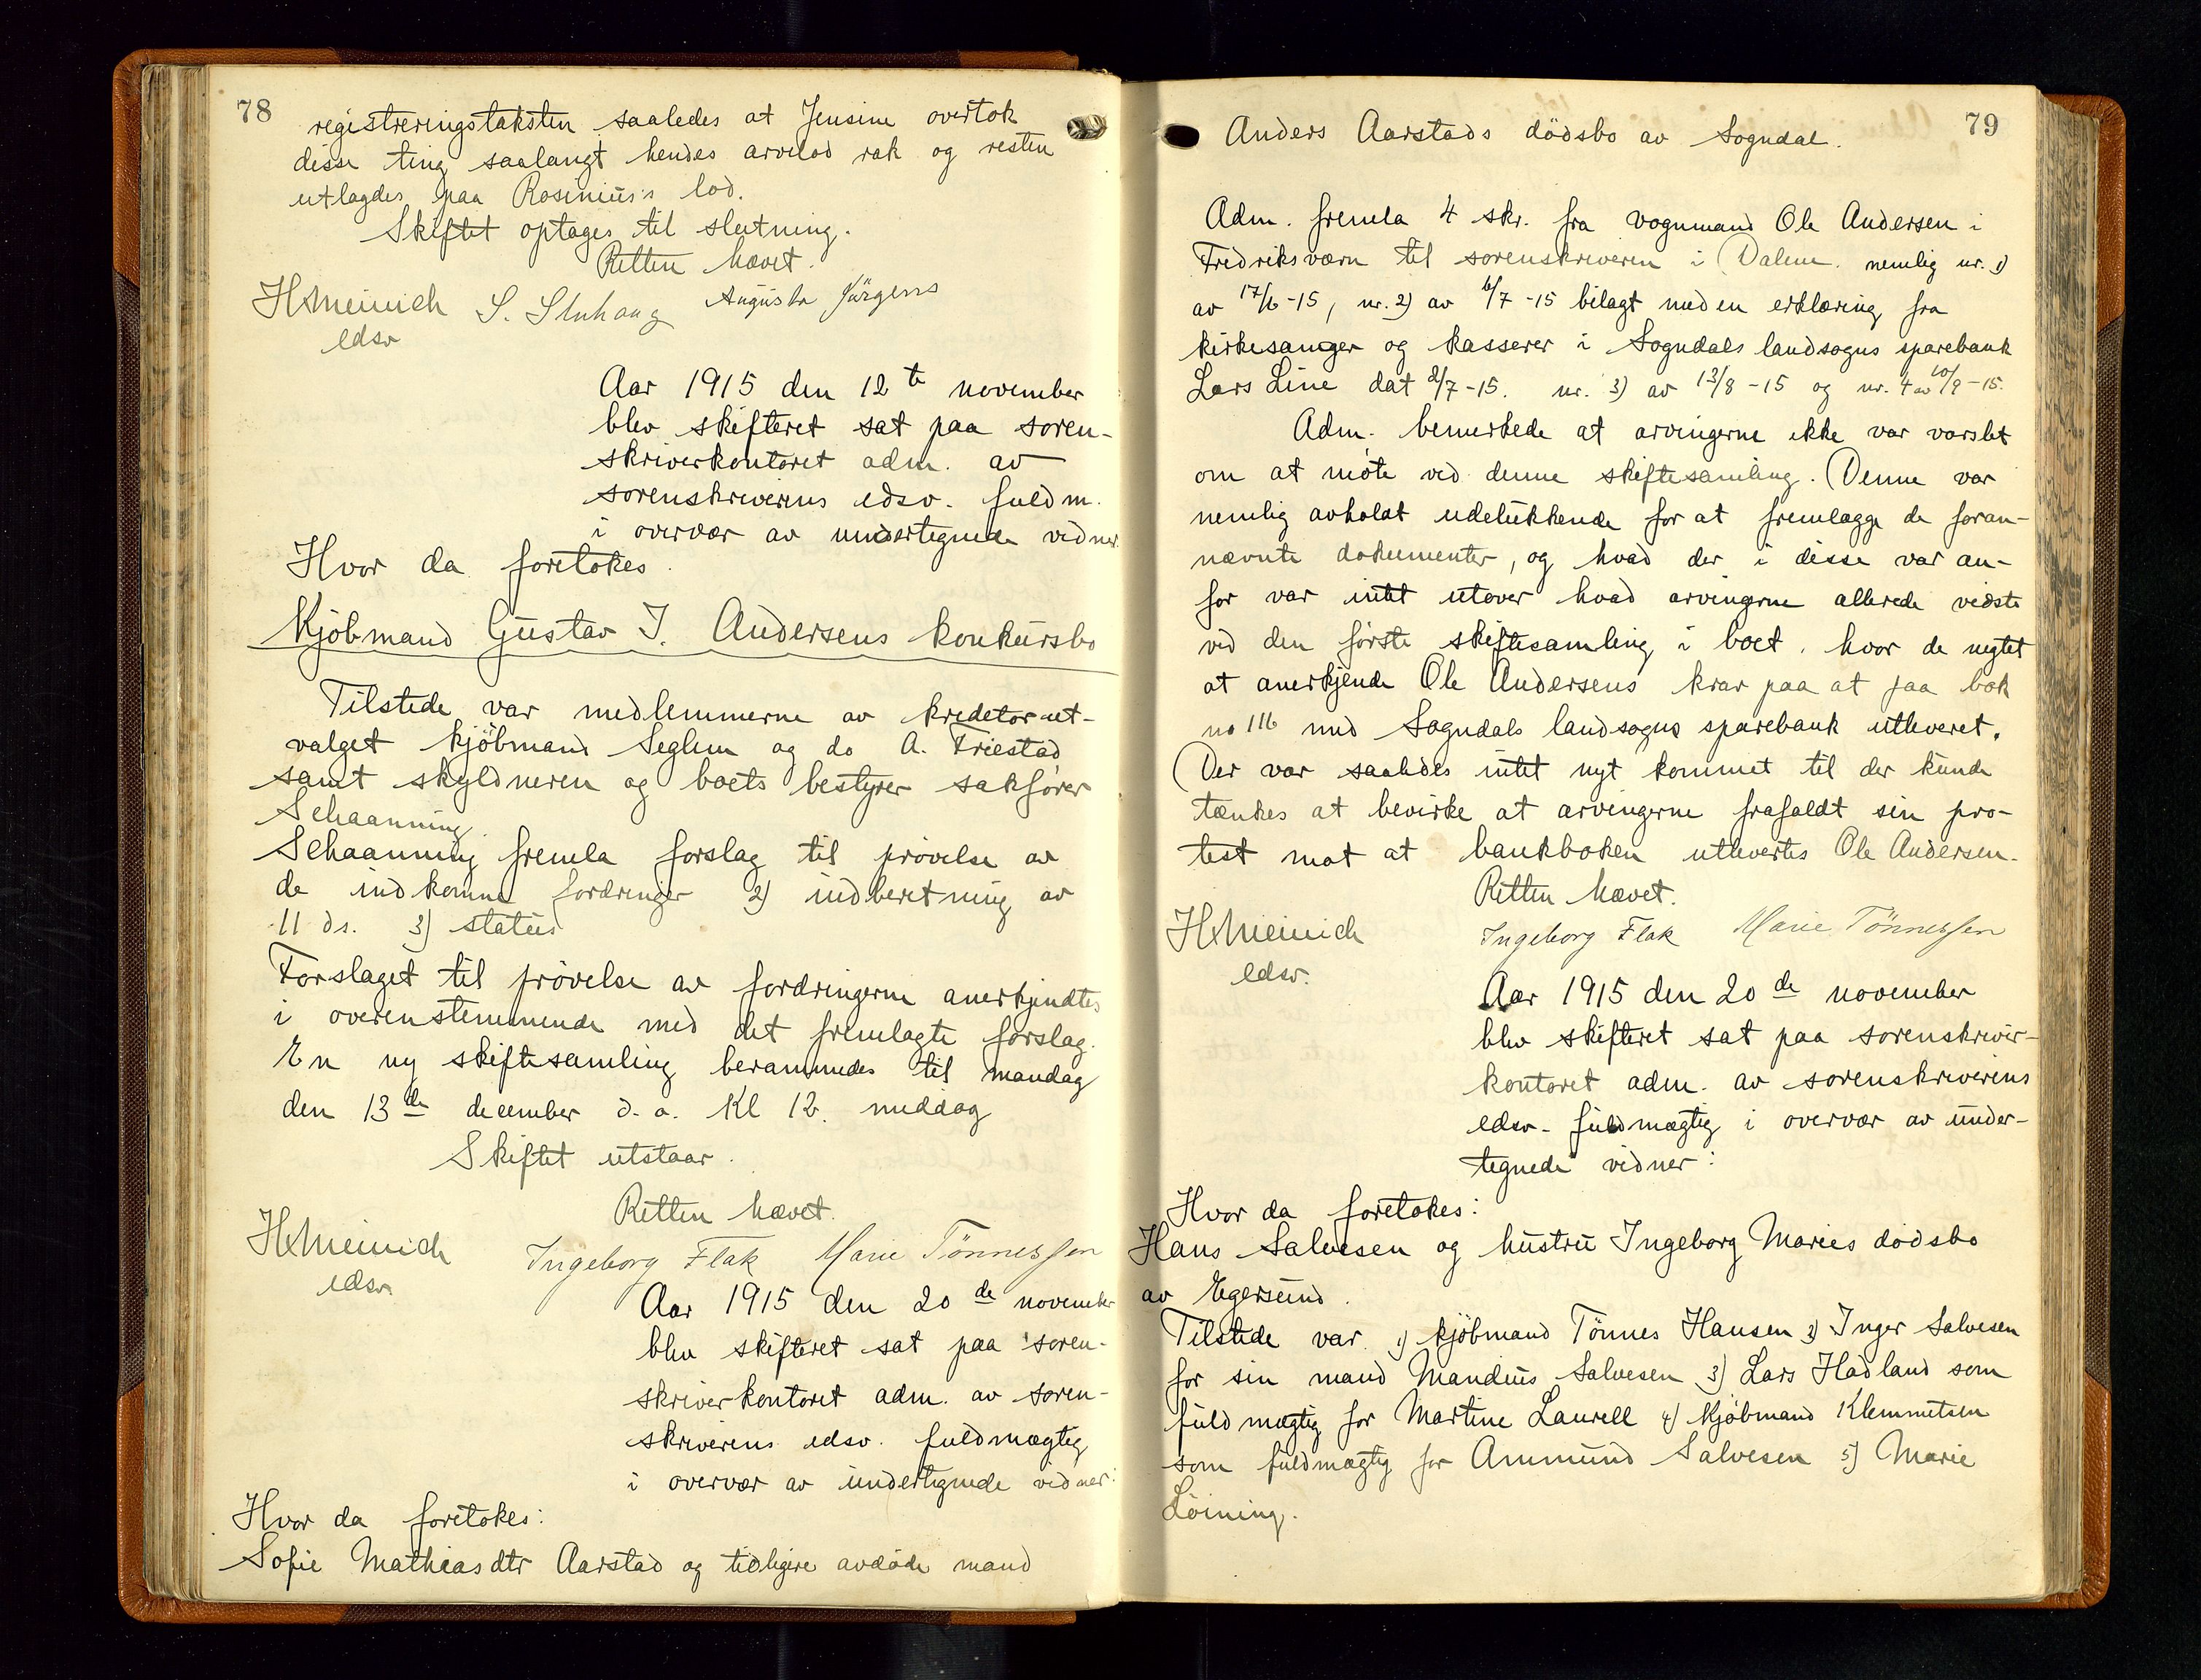 78
registreringstaksten saaledes at Jensine overtok
disse ting saalangt hendes arvelod rak og resten
utlagdes paa Rosinius's lod.
Skiftet optages til slutning.
Retten hævet.
HMeinich S. Stuhaug Augusta Jürgens
edsv
Aar 1915 den 12te november
blev skifteret sat paa soren-
skriverkontoret adm. av
sorenskriverens edsv. fuldm.
i overvær av undertegnede vidner
Hvor da foretokes.
Kjöbmand Gustav J. Andersens konkursbo
Tilstede var medlemmerne av kreditorut-
valget kjöbmand Seglem og do A. Friestad
samt skyldneren og boets bestyrer sakfører
Schaanning.
Schaanning fremla forslag til prøvelse av
de indkomne fordringer 2) indberetning av
11 ds. 3) status
Forslaget til prövelse av fordringerne anerkjendtes
i overenstemmende med det fremlagte forslag.
En ny skiftesamling berammedes til mandag
den 13de december d. a. Kl 12. middag
Skiftet utstaar.
Retten hævet.
HMeinich Ingeborg Flak Marie Tönnessen
edsv.
Aar 1915 den 20de november
blev skifteret sat paa soren-
skriverkontoret adm. av soren-
skriverens edsv. fuldmægtig
i overvær av undertegnede vidner:
Hvor da foretokes:
Sofie Mathiasdtr Aarstad og tidligere avdöde mand
79
Anders Aarstads dödsbo av Sogndal.
Adm. fremla 4 skr. fra vognmand Ole Andersen i
Fredriksværn til sorenskriveren i Dalene. nemlig nr. 1)
av 17/6-15, nr. 2) av 6/7-15 bilagt med en erklæring fra
kirkesanger og kasserer i Sogndals landsogns sparebank
Lars Line dat 2/7-15. nr. 3) av 13/8-15 og nr. 4 av 10/9-15.
Adm. bemerkede at arvingerne ikke var varslet
om at möte ved denne skiftesamling. Denne var
nemlig avholdt udelukkende for at fremlægge de foran-
nævnte dokumenter, og hvad der i disse var an-
før var intet utover hvad arvingerne allerede vidste
ved den förste skiftesamling i boet, hvor de negtet
at anerkjende Ole Andersens krav paa at faa bok
no 116 med Sogndals landsogns sparebank utleveret.
Der var saaledes intet nyt kommet til der kunde
tænkes at bevirke at arvingerne frafaldt sin pro-
test mot at bankboken utlevertes Ole Andersen.
Retten hævet.
HMeinich Ingeborg Flak Marie Tönnessen
edsv.
Aar 1915 den 20de november
blev skifteret sat paa sorenskriver-
kontoret adm. av sorenskriverens
edsv. fuldmægtig i overvær av under-
tegnede vidner:
Hvor da foretokes:
Hans Salvesen og hustru Ingeborg Maries dödsbo
av Egersund.
Tilstede var 1) kjöbmand Tönnes Hansen 2) Inger Salvesen
for sin mand Mandius Salvesen 3) Lars Hadland som
fuldmægtig for Martine Laurell 4) kjöbmand Klemmetsen
som fuldmægtig for Ammund Salvesen 5) Marie
Löining.